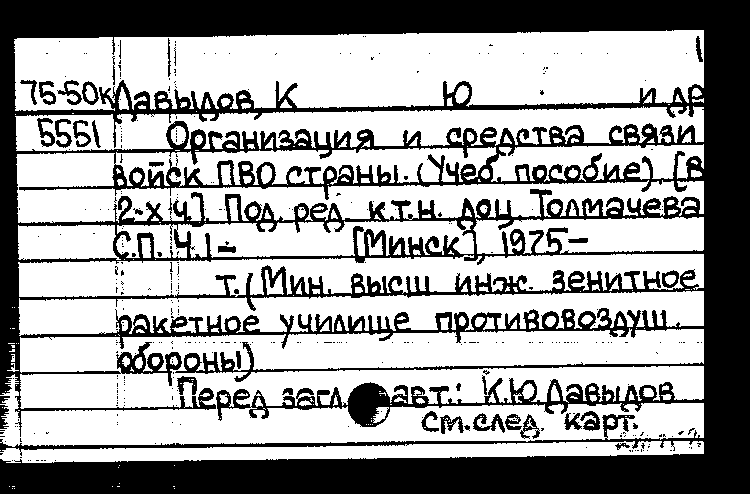 1
75-50к Давыдов, К Ю и др
5551 Организация и средства связи
войск ПВО страны. (Учеб. пособие). [В
2-х ч]. Под. ред. к.т.н. доц. Толмачева
С.П. Ч.1- [Минск], 1975-
т. (Мин. высш. инж. зенитное
ракетное училище противовоздуш.
обороны)
Перед загл. авт.: К.Ю.Давыдов
См. след. карт.